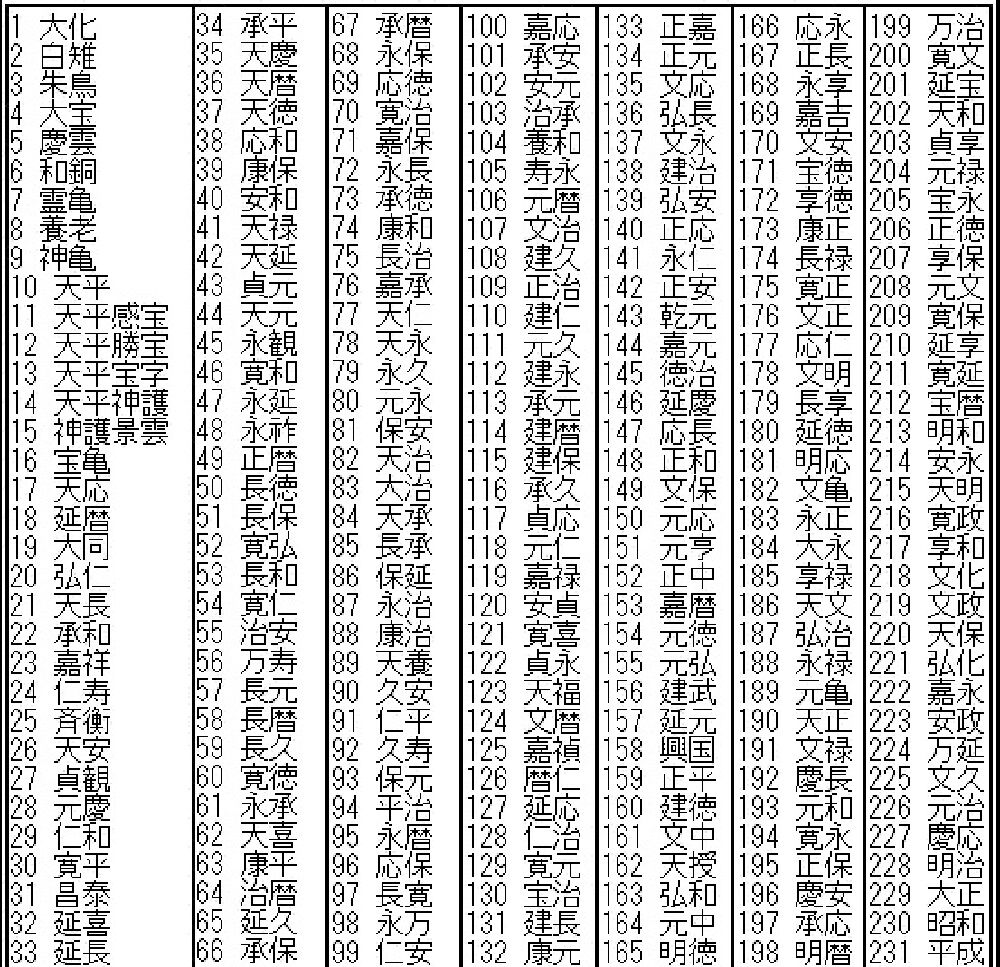 1 大化
2 白雉
3 朱鳥
4 大宝
5 慶雲
6 和銅
7 霊亀
8 養老
9 神亀
10 天平
11 天平感宝
12 天平勝宝
13 天平宝字
14 天平神護
15 神護景雲
16 宝亀
17 天応
18 延暦
19 大同
20 弘仁
21 天長
22 承和
23 嘉祥
24 仁寿
25 斉衡
26 天安
27 貞観
28 元慶
29 仁和
30 寛平
31 昌泰
32 延喜
33 延長
34 承平
35 天慶
36 天暦
37 天徳
38 応和
39 康保
40 安和
41 天禄
42 天延
43 貞元
44 天元
45 永観
46 寛和
47 永延
48 永祚
49 正暦
50 長徳
51 長保
52 寛弘
53 長和
54 寛仁
55 治安
56 万寿
57 長元
58 長暦
59 長久
60 寛徳
61 永承
62 天喜
63 康平
64 治暦
65 延久
66 承保
67 承暦
68 永保
69 応徳
70 寛治
71 嘉保
72 永長
73 承徳
74 康和
75 長治
76 嘉承
77 天仁
78 天永
79 永久
80 元永
81 保安
82 天治
83 大治
84 天承
85 長承
86 保延
87 永治
88 康治
89 天養
90 久安
91 仁平
92 久寿
93 保元
94 平治
95 永暦
96 応保
97 長寛
98 永万
99 仁安
100 嘉応
101 承安
102 安元
103 治承
104 養和
105 寿永
106 元暦
107 文治
108 建久
109 正治
110 建仁
111 元久
112 建永
113 承元
114 建暦
115 建保
116 承久
117 貞応
118 元仁
119 嘉禄
120 安貞
121 寛喜
122 貞永
123 天福
124 文暦
125 嘉禎
126 暦仁
127 延応
128 仁治
129 寛元
130 宝治
131 建長
132 康元
133 正嘉
134 正元
135 文応
136 弘長
137 文永
138 建治
139 弘安
140 正応
141 永仁
142 正安
143 乾元
144 嘉元
145 徳治
146 延慶
147 応長
148 正和
149 文保
150 元応
151 元亨
152 正中
153 嘉暦
154 元徳
155 元弘
156 建武
157 延元
158 興国
159 正平
160 建徳
161 文中
162 天授
163 弘和
164 元中
165 明徳
166 応永
167 正長
168 永享
169 嘉吉
170 文安
171 宝徳
172 享徳
173 康正
174 長禄
175 寛正
176 文正
177 応仁
178 文明
179 長享
180 延徳
181 明応
182 文亀
183 永正
184 大永
185 享禄
186 天文
187 弘治
188 永禄
189 元亀
190 天正
191 文禄
192 慶長
193 元和
194 寛永
195 正保
196 慶安
197 承応
198 明暦
199 万治
200 寛文
201 延宝
202 天和
203 貞享
204 元禄
205 宝永
206 正徳
207 享保
208 元文
209 寛保
210 延享
211 寛延
212 宝暦
213 明和
214 安永
215 天明
216 寛政
217 享和
218 文化
219 文政
220 天保
221 弘化
222 嘉永
223 安政
224 万延
225 文久
226 元治
227 慶応
228 明治
229 大正
230 昭和
231 平成